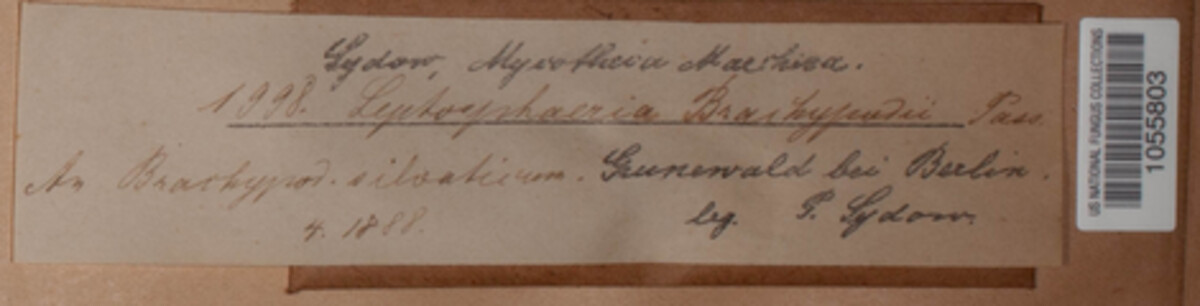 Sydow, Mycotheca Marchica.
1998. Leptosphaeria Brachypodii Pass.
An Brachypod. silvaticum. Grunewald bei Berlin.
4. 1888. leg. P. Sydow.
US NATIONAL FUNGUS COLLECTIONS
1055803